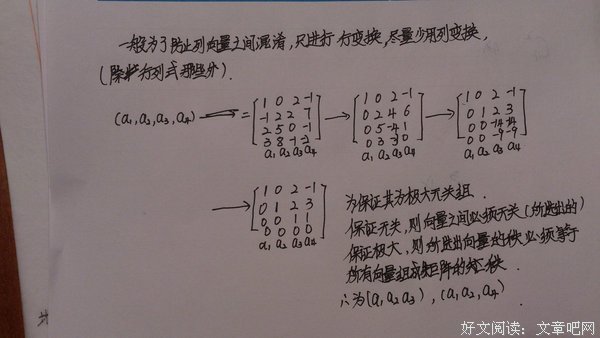 一般为了防止列向量之间混淆,只进行 行变换,尽量少用列变换,
(除非行列式那些外).
(a₁,a₂,a₃,a₄) → = [1 0 2 -1 → [1 0 2 -1 → [1 0 2 -1
-1 2 2 7 0 2 4 6 0 1 2 3
2 5 0 -1 0 5 -4 1 0 0 -14 -14
3 8 -1 -2] 0 3 -3 0] 0 0 -9 -9]
a₁ a₂ a₃ a₄ a₁ a₂ a₃ a₄ a₁ a₂ a₃ a₄
→ [1 0 2 -1
0 1 2 3
0 0 1 1
0 0 0 0]
a₁ a₂ a₃ a₄
为保证其为极大无关组.
保证无关,则向量之间必须无关(所选出的)
保证极大,则所选出向量的秩必须等于
所有向量组成矩阵的秩.
∴为(a₁ a₂ a₃), (a₁ a₂, a₄)
好文阅读:文章吧网